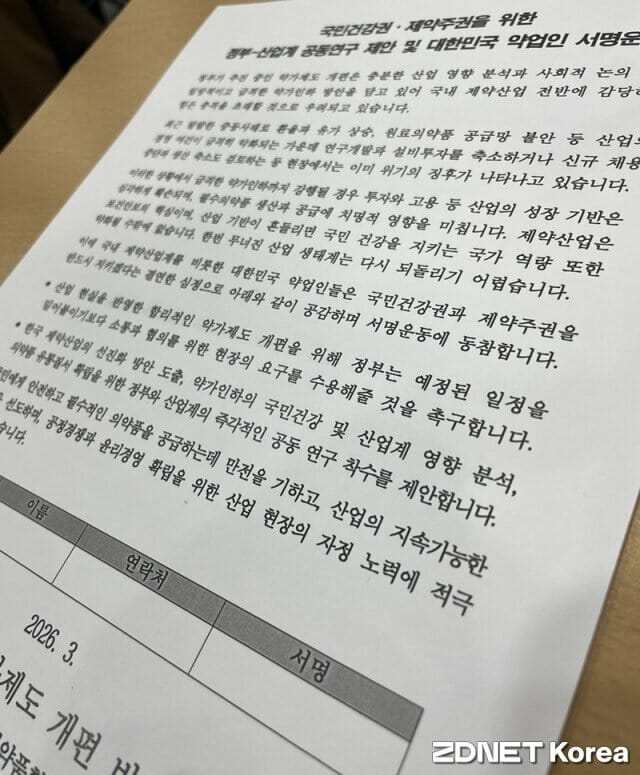 국민건강권·제약주권을 위한
정부-산업계 공동연구 제안 및 대한민국 약업인 서명운
정부가 추진 중인 약가제도 개편은 충분한 산업 영향 분석과 사회적 논의
일방적이고 급격한 약가인하 방안을 담고 있어 국내 제약산업 전반에 감당하
힘든 충격을 초래할 것으로 우려되고 있습니다.
최근 발발한 중동사태로 환율과 유가 상승, 원료의약품 공급망 불안 등 산업의
경영 여건이 급격히 악화되는 가운데 연구개발과 설비투자를 축소하거나 신규 채용
중단과 생산 축소도 검토하는 등 현장에서는 이미 위기의 징후가 나타나고 있습니다.
이러한 상황에서 급격한 약가인하까지 강행될 경우 투자와 고용 등 산업의 성장 기반은
심각하게 훼손되며, 필수의약품 생산과 공급에 치명적 영향을 미칩니다. 제약산업은
보건안보의 핵심이며, 산업 기반이 흔들리면 국민 건강을 지키는 국가 역량 또한
약화될 수밖에 없습니다. 한번 무너진 산업 생태계는 다시 되돌리기 어렵습니다.
이에 국내 제약산업계를 비롯한 대한민국 약업인들은 국민건강권과 제약주권을
반드시 지키겠다는 결연한 심정으로 아래와 같이 공감하며 서명운동에 동참합니다.
* 산업 현실을 반영한 합리적인 약가제도 개편을 위해 정부는 예정된 일정을
밀어붙이기보다 소통과 협의를 위한 현장의 요구를 수용해줄 것을 촉구합니다.
* 한국 제약산업의 선진화 방안 도출, 약가인하의 국민건강 및 산업계 영향 분석,
의약품 유통질서 확립을 위한 정부와 산업계의 즉각적인 공동 연구 착수를 제안합니다.
민에게 안전하고 필수적인 의약품을 공급하는데 만전을 기하고, 산업의 지속가능한
선도하며, 공정경쟁과 윤리경영 확립을 위한 산업 현장의 자정 노력에 적극
습니다.
이름
연락처
서명
2026. 3.
제도 개편 비
약품
ZDNET Korea